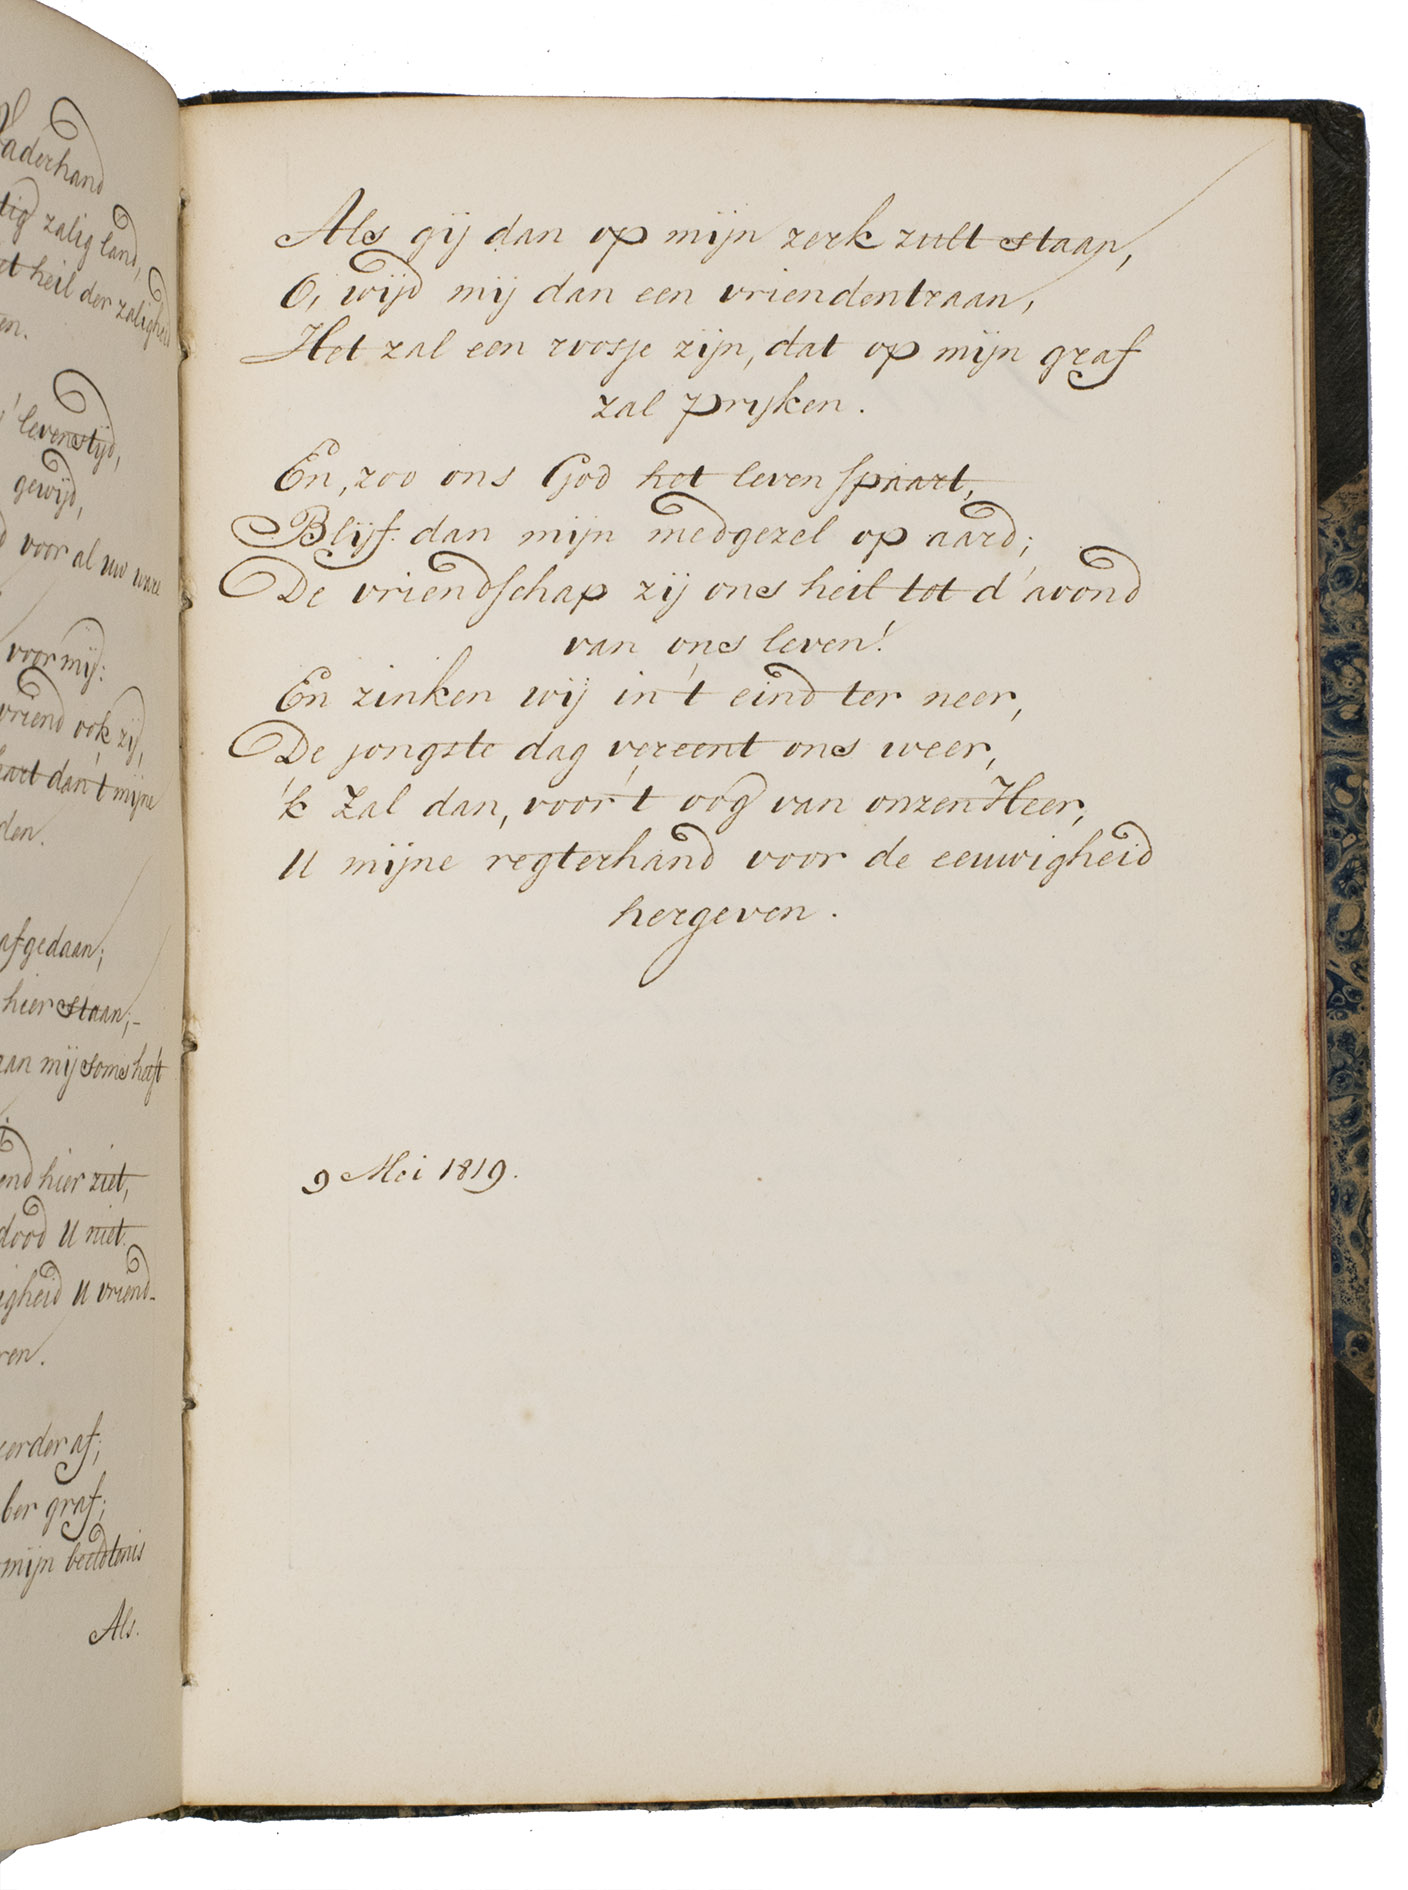 aderhand
tig zalig land,
et heil der zaligheid
en.
levenstijd,
gewijd,
voor al uw ware
voor mij:
vriend ook zij,
hart dan 't mijne
den.
afgedaan;
hier staan;-
aan mij soms heft
end hier ziet,
dood U niet.
igheid U vriend-
ren.
eerder af;
ber graf;
mijn beeldtenis
Als.
Als gij dan op mijn zerk zult staan,
O, wijd mij dan een vriendentraan,
Het zal een roosje zijn, dat op mijn graf
zal prijken.
En, zoo ons God het leven spaart,
Blijf dan mijn medgezel op aard;
De vriendschap zij ons heil tot d'avond
van ons leven!
En zinken wij in 't eind ter neer,
De jongste dag vereent ons weer,
'k Zal dan, voor 't oog van onzen Heer,
U mijne regterhand voor de eeuwigheid
hergeven.
9 Mei 1819.